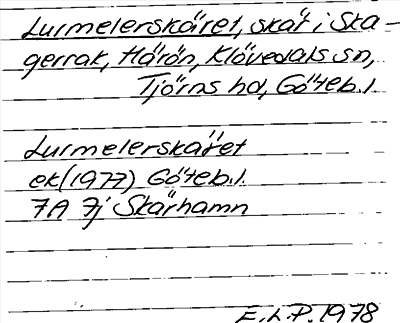 Lurmelerskäret, skär i Ska-
gerrak, Härön, Klövedals sn,
Tjörns hd, Göteb. l.
Lurmelerskäret
ek (1977) Göteb. l.
7A 7j Skärhamn
E.L.P. 1978